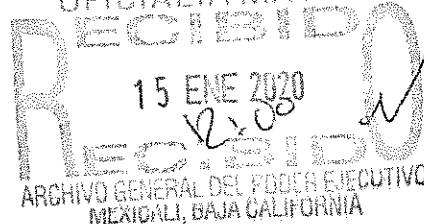 OFICIALIA MA
RECIBIDO
15 ENE 2020
12:00
RECIBIDO
ARCHIVO GENERAL DEL PODER EJECUTIVO
MEXICALI, BAJA CALIFORNIA